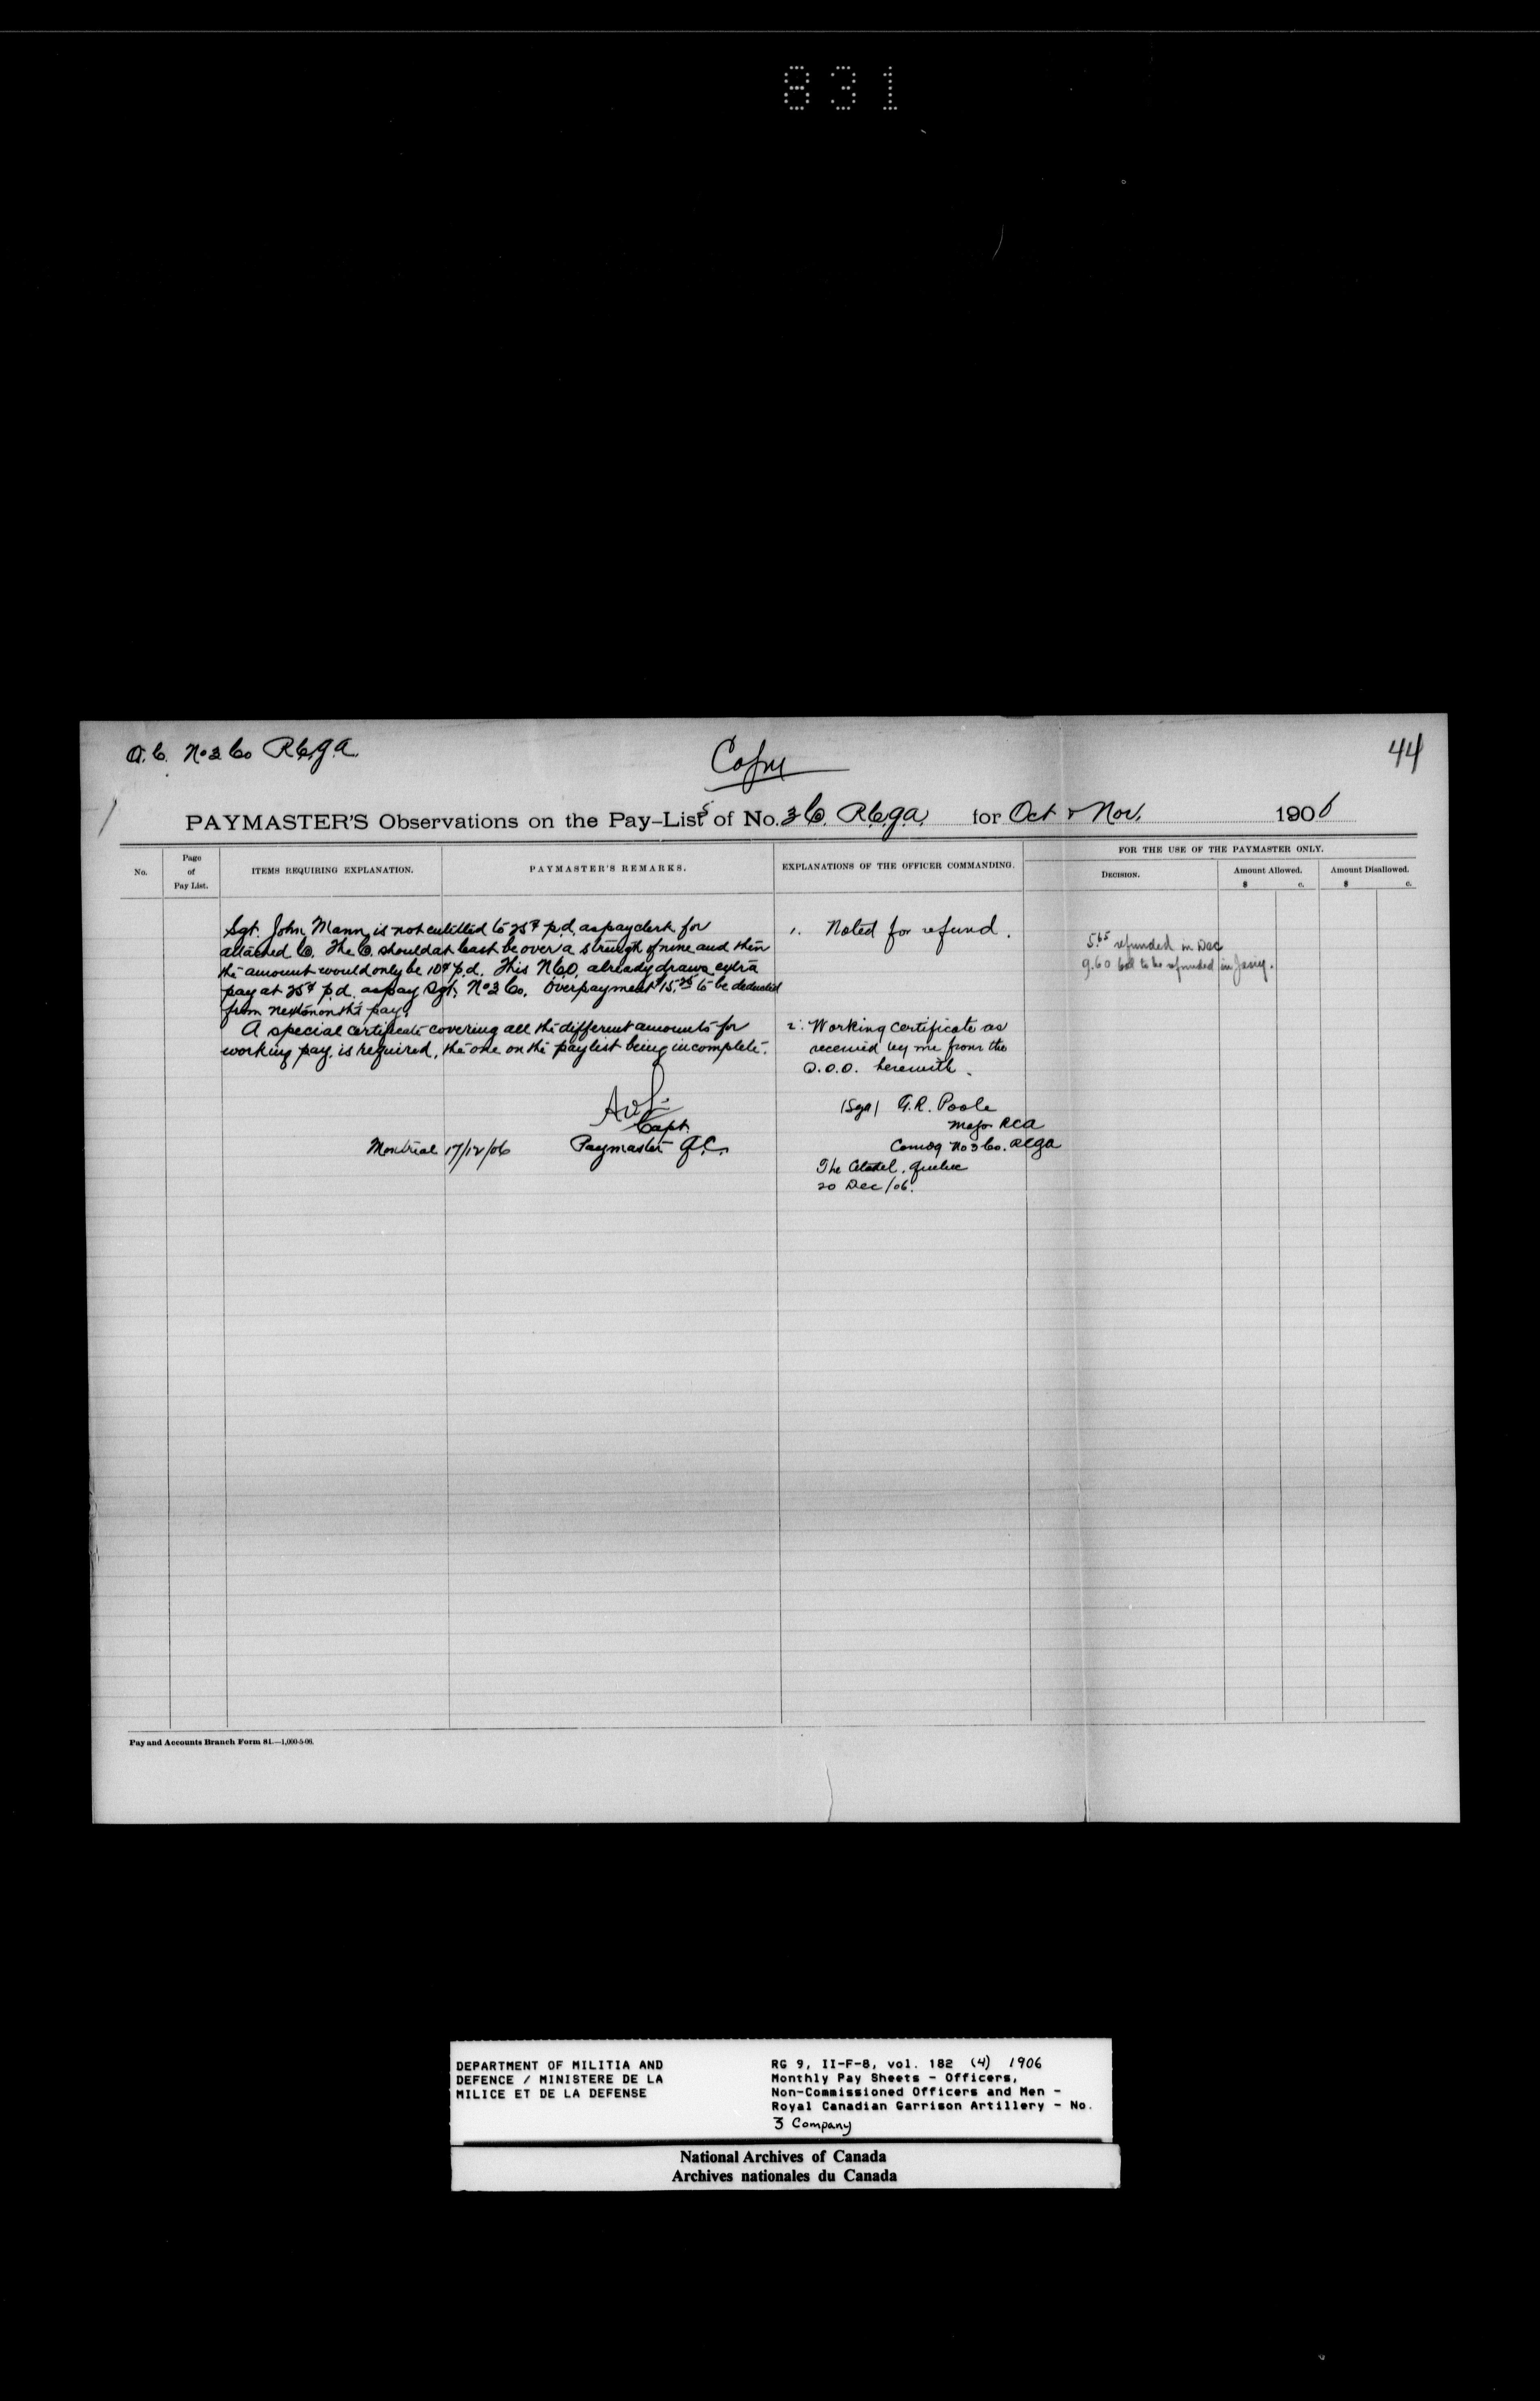 831
O.C. No 3 Co R.C.G.A.
Copy
44
PAYMASTER'S Observations on the Pay-Lists of No. 3 Co. R.C.G.A. for Oct & Nov. 1906
No.
Page of Pay List.
ITEMS REQUIRING EXPLANATION.
PAYMASTER'S REMARKS.
EXPLANATIONS OF THE OFFICER COMMANDING.
FOR THE USE OF THE PAYMASTER ONLY.
DECISION.
Amount Allowed.
$ c.
Amount Disallowed.
$ c.
Sgt. John Mann is not entitled to 25¢ p.d. as pay clerk for
attached Co. The Co. should at least be over a strength of nine and then
the amount would only be 10¢ p.d. This N.C.O. already draws extra
pay at 25¢ p.d. as pay Sgt. No 3 Co. Overpayment $15.25 to be deducted
from next month's pay.
A special certificate covering all the different amounts for
working pay, is required, the one on the paylist being incomplete.
Capt.
Montreal 17/12/06 Paymaster Q.C.
1. Noted for refund.
2. Working certificate as
received by me from the
O.O.O. herewith.
(Sgd) G.R. Poole
Major RCA
Comdg No 3 Co. RCGA
The Citadel, Quebec
20 Dec/06.
5.65 refunded in Dec
9.60 bal to be refunded in Jany.
Pay and Accounts Branch Form 81.—1,000-5-06.
DEPARTMENT OF MILITIA AND
DEFENCE / MINISTERE DE LA
MILICE ET DE LA DEFENSE
RG 9, II-F-8, vol. 182 (4) 1906
Monthly Pay Sheets - Officers,
Non-Commissioned Officers and Men -
Royal Canadian Garrison Artillery - No.
3 Company
National Archives of Canada
Archives nationales du Canada